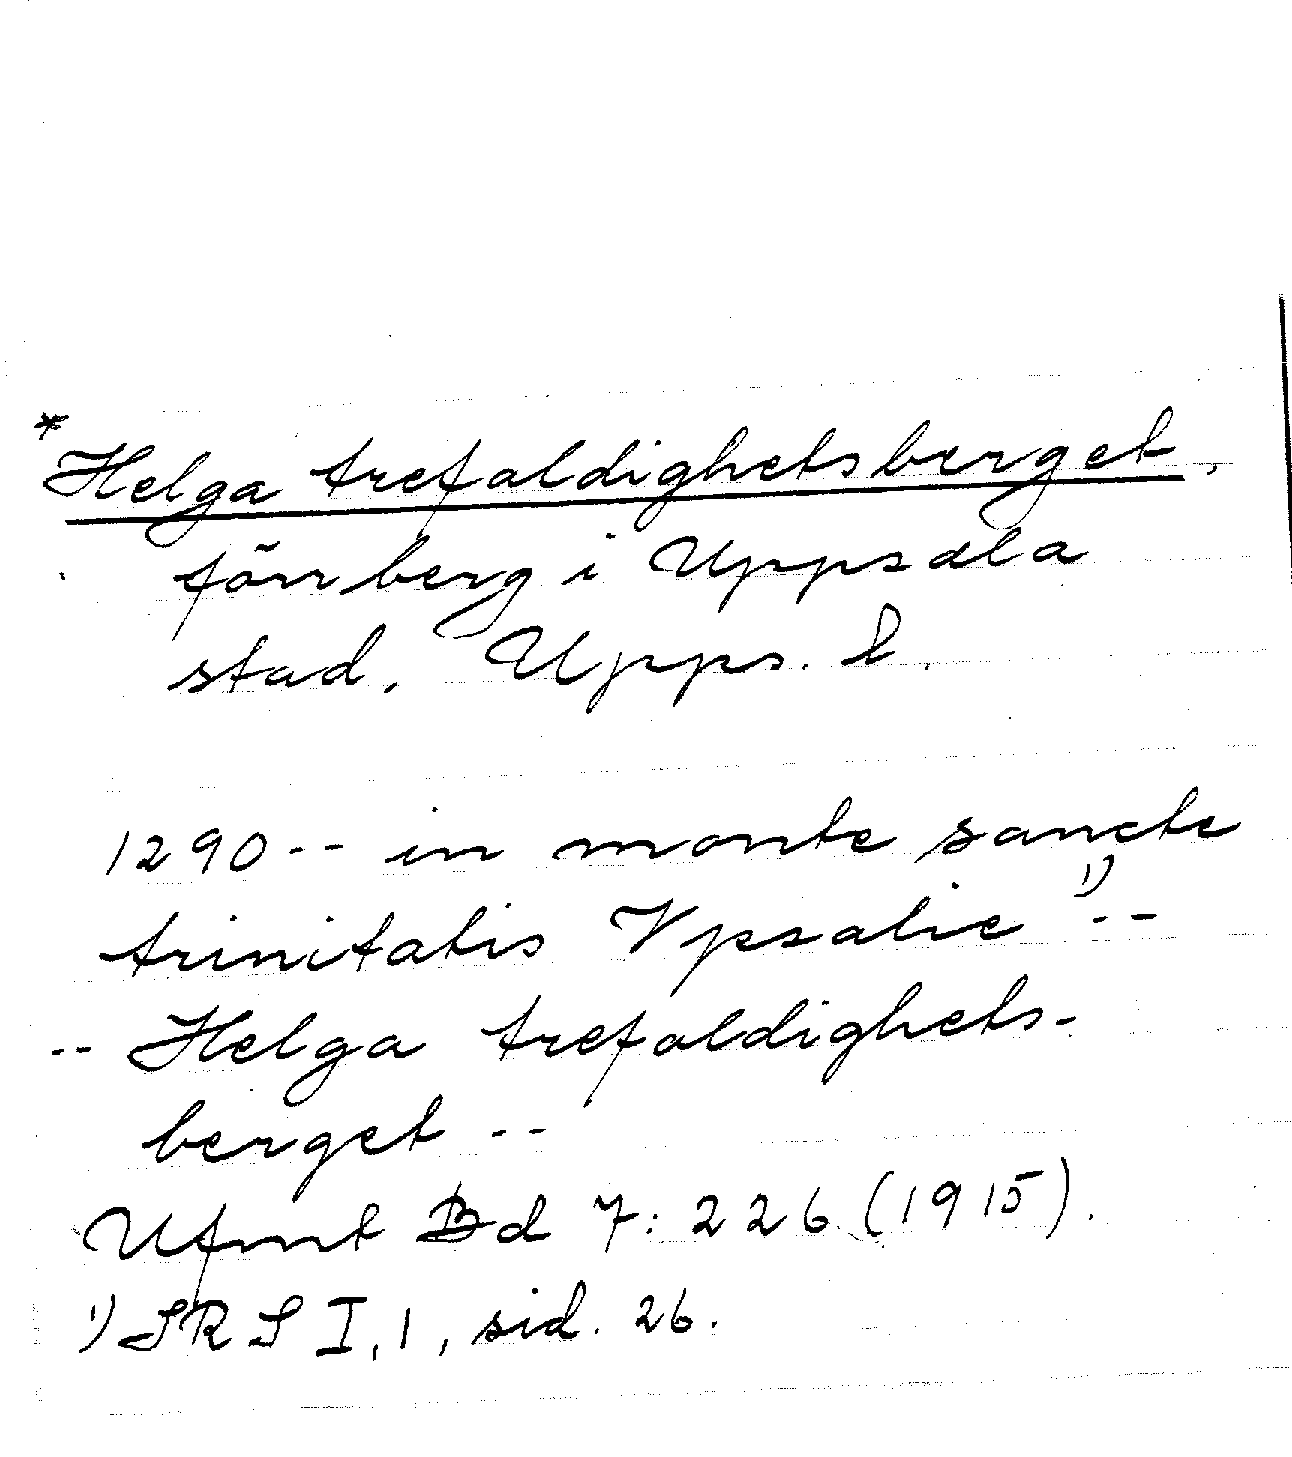 *
Helga trefaldighetsberget,
förr berg i Uppsala
stad, Upps. l.
1290 -- in monte sancte
trinitatis Vpsalie 1) --
-- Helga trefaldighets-
berget --
Ufmt Bd 7: 226 (1915).
1) SRS I, 1, sid. 26.